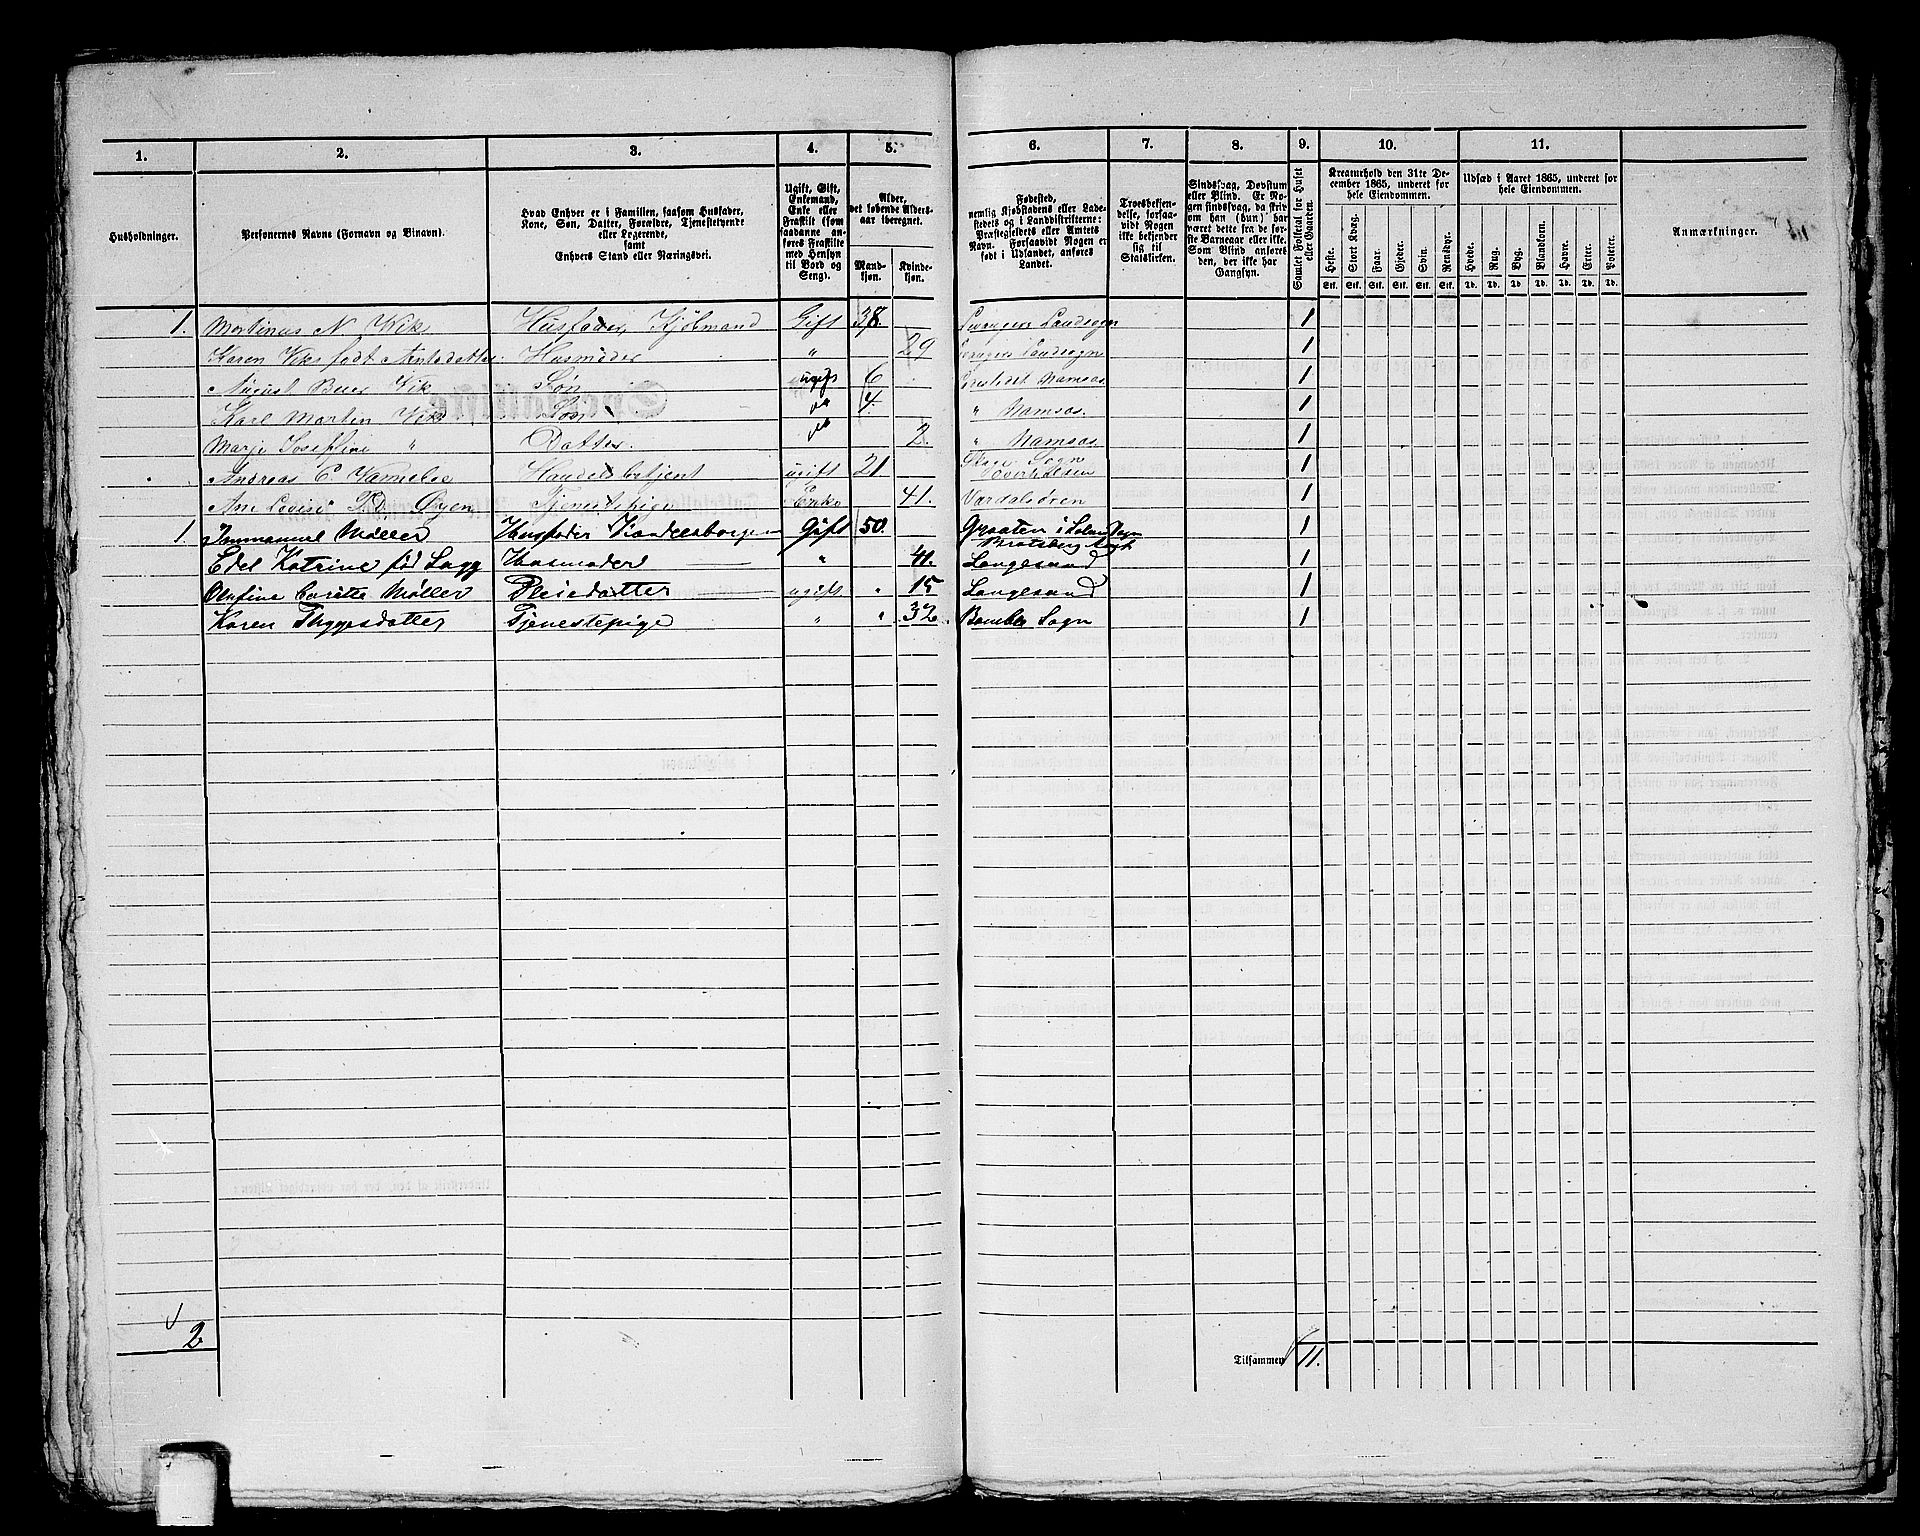 1. 2. 3. 4. 5. 6. 7. 8. 9. 10. 11.
Husholdninger.
Personernes Navne (Fornavn og Binavn).
Hvad Enhver er i Familien, saasom Husfader,
Kone, Søn, Datter, Forældre, Tjenestetyende
eller Logerende,
samt
Enhvers Stand eller Næringsvei.
Ugift, Gift,
Enkemand,
Enke eller
Fraskilt (som
saadanne an-
føres Fraskilte
med Hensyn
til Bord og
Seng).
Alder,
det løbende Alders-
aar iberegnet.
Mand-
kjøn.
Kvinde-
kjøn.
Fødested,
nemlig Kjøbstadens eller Lade-
stedets og i Landdistrikterne:
Præstegjeldets eller Amtets
Navn. Forsaavidt Nogen er
født i Udlandet, anføres
Landet.
Troesbekjen-
delse, forsaa-
vidt Nogen
ikke bekjender
sig til
Statskirken.
Sindssvag, Døvstum
eller Blind. Er No-
gen sindssvag, da skriv
om han (hun) har
været dette fra de før-
ste Barneaar eller ikke.
Som Blind anføres
den, der ikke har
Gangsyn.
Samlet Folketal for Huset
eller Gaarden.
Kreaturhold den 31te De-
cember 1865, underet for
hele Eiendommen.
Heste. Stort Kvæg. Faar. Gjeder. Svin. Rensdyr.
Stk. Stk. Stk. Stk. Stk. Stk.
Udsæd i Aaret 1865, underet for
hele Eiendommen.
Hvede. Rug. Byg. Blandkorn. Havre. Erter. Poteter.
Td. Td. Td. Td. Td. Td. Td.
Anmærkninger.
1. Martinus N Wik Husfader Kjøbmand Gift 38 Landsogn 1
Karen Husmoder " 29 1
August Wik Søn ugift 6 Namsos 1
Karl Martin Wik Søn 4 " Namsos. 1
Marje Josefine " Datter. 2. " Namsos. 1
Andreas C. Handelsbetjent ugift 21 Sogn 1
Ane Lovise Øyen Tjenestepige Enke 41. 1
1. Immanuel Møller Husfader Gift 50. Graaten i Sogn 1
Bratsberg Amt
Edel Katrine fød Husmoder " 41. Langesund 1
Møller Pleiedatter ugift " 15 Langesund 1
Karen Thygesdatter Tjenestepige " " 32 Bamble Sogn 1
2
Tilsammen 11.